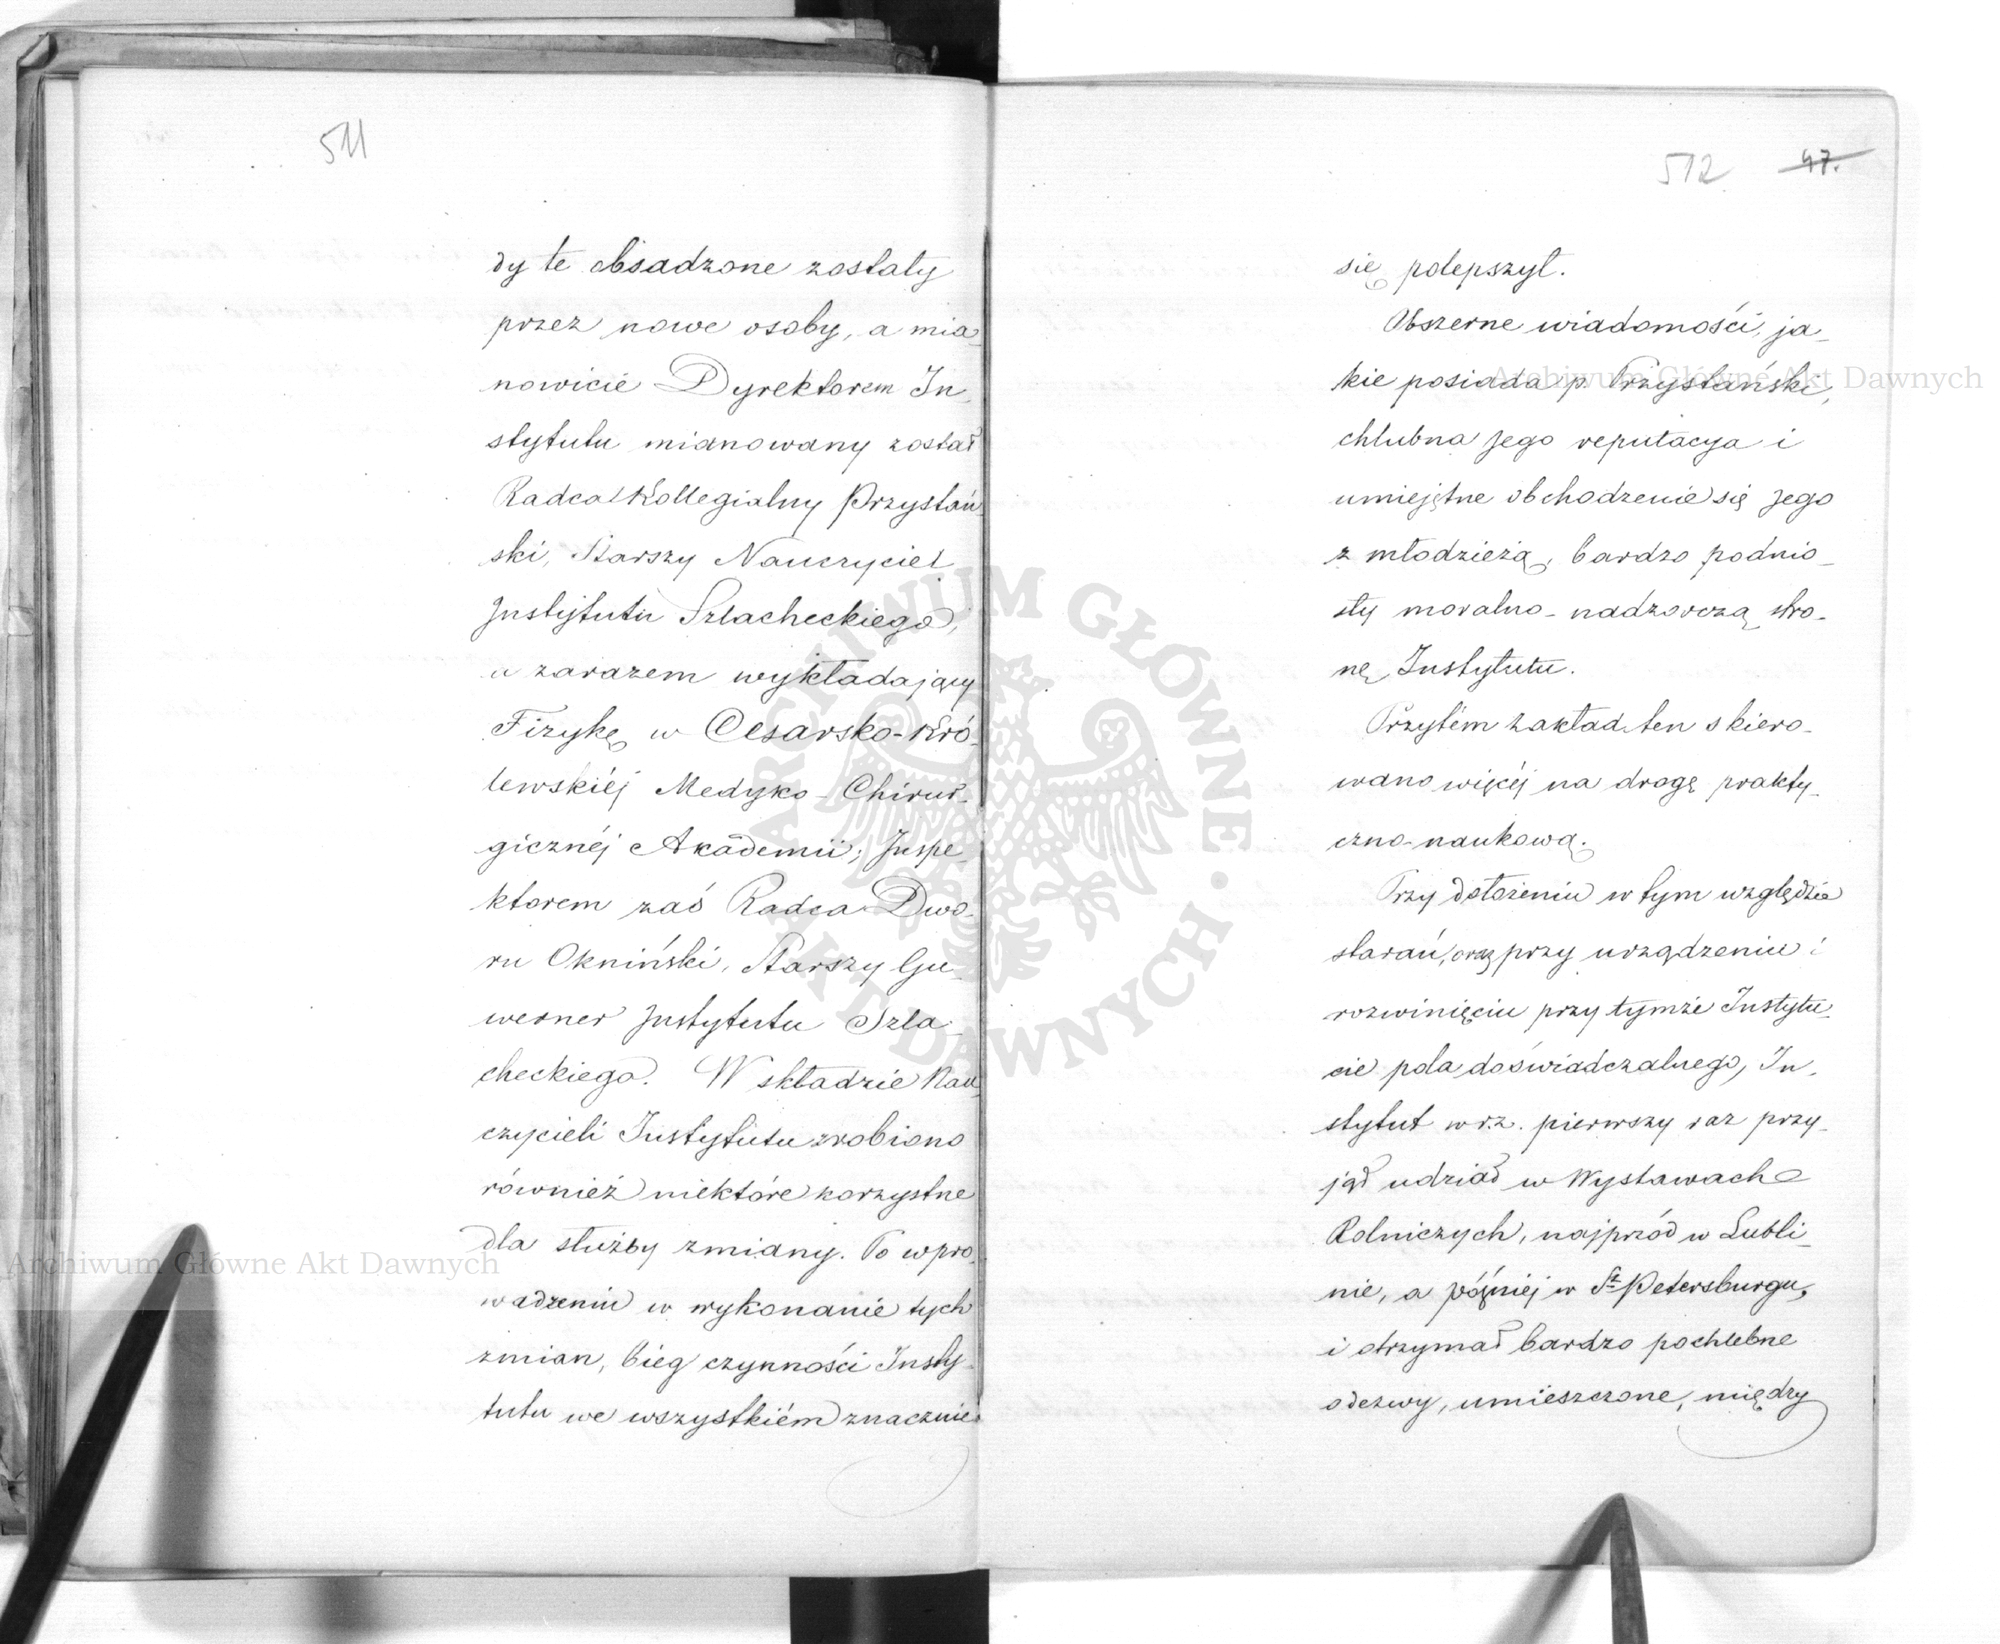 511
dy te obsadzone zostały
przez nowe osoby, a mia-
nowicie Dyrektorem In-
stytutu mianowany został
Radca Kollegialny Przystań-
ski, Starszy Nauczyciel
Instytutu Szlacheckiego,
a zarazem wykładający
Fizykę w Cesarsko-Kró-
lewskiéj Medyko-Chirur-
gicznéj Akademii; Inspe-
ktorem zaś Radca Dwo-
ru Okniński, Starszy Gu-
werner Instytutu Szla-
checkiego. W składzie Nau-
czycieli Instytutu zrobiono
również niektóre korzystne
dla służby zmiany. Po wpro-
wadzeniu w wykonanie tych
zmian, bieg czynności Insty-
tutu we wszystkiém znacznie
512 47.
się polepszył.
Obszerne wiadomości, ja-
kie posiada p. Przystański,
chlubna jego reputacya i
umiejętne obchodzenie się jego
z młodzieżą, bardzo podnio-
sły moralno-nadzorczą stro-
nę Instytutu.
Przytém zakład ten skiero-
wano więcéj na drogę prakty-
czno-naukową.
Przy dołożeniu w tym względzie
starań, oraz przy urządzeniu i
rozwinięciu przy tymże Instytu-
cie pola doświadczalnego, In-
stytut w r.z. pierwszy raz przy-
jął udział w Wystawach
Rolniczych, najprzód w Lubli-
nie, a późniéj w St Petersburgu,
i otrzymał bardzo pochlebne
odezwy, umieszczone, między
ARCHIWUM GŁÓWNE AKT DAWNYCH
Archiwum Główne Akt Dawnych
Archiwum Główne Akt Dawnych